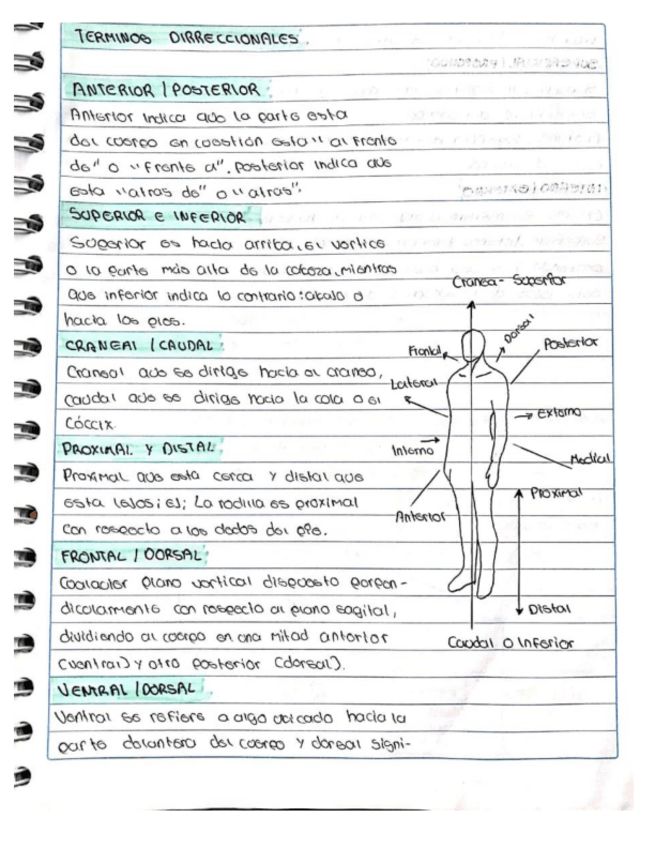 TERMINOS DIRRECCIONALES.
ANTERIOR / POSTERIOR:
Anterior indica que la parte esta
del cuerpo en cuestión esta "al frente
de" o "frente a". Posterior indica que
esta "atras de" o "atras".
SUPERIOR E INFERIOR
Superior es hacia arriba, el vertice
o la parte más alta de la cabeza, mientras
que inferior indica lo contrario: abajo o
hacia los pies.
CRANEAL / CAUDAL:
Craneal que se dirige hacia el craneo,
caudal que se dirige hacia la cola o el
cóccix.
PROXIMAL Y DISTAL
Proximal que esta cerca y distal que
esta lejos; ej; La rodilla es proximal
con respecto a los dedos del pie.
FRONTAL / DORSAL:
Cualquier plano vertical dispuesto perpen-
dicularmente con respecto al plano sagital,
dividiendo al cuerpo en una mitad anterior
(ventral) y otro posterior (dorsal).
VENTRAL / DORSAL
Ventral se refiere a algo ubicado hacia la
parte delantera del cuerpo y dorsal signi-
Cranea - Superior
Frontal
Dorsal
Posterior
Lateral
Externo
Interno
Medial
Anterior
Proximal
Distal
Caudal o Inferior